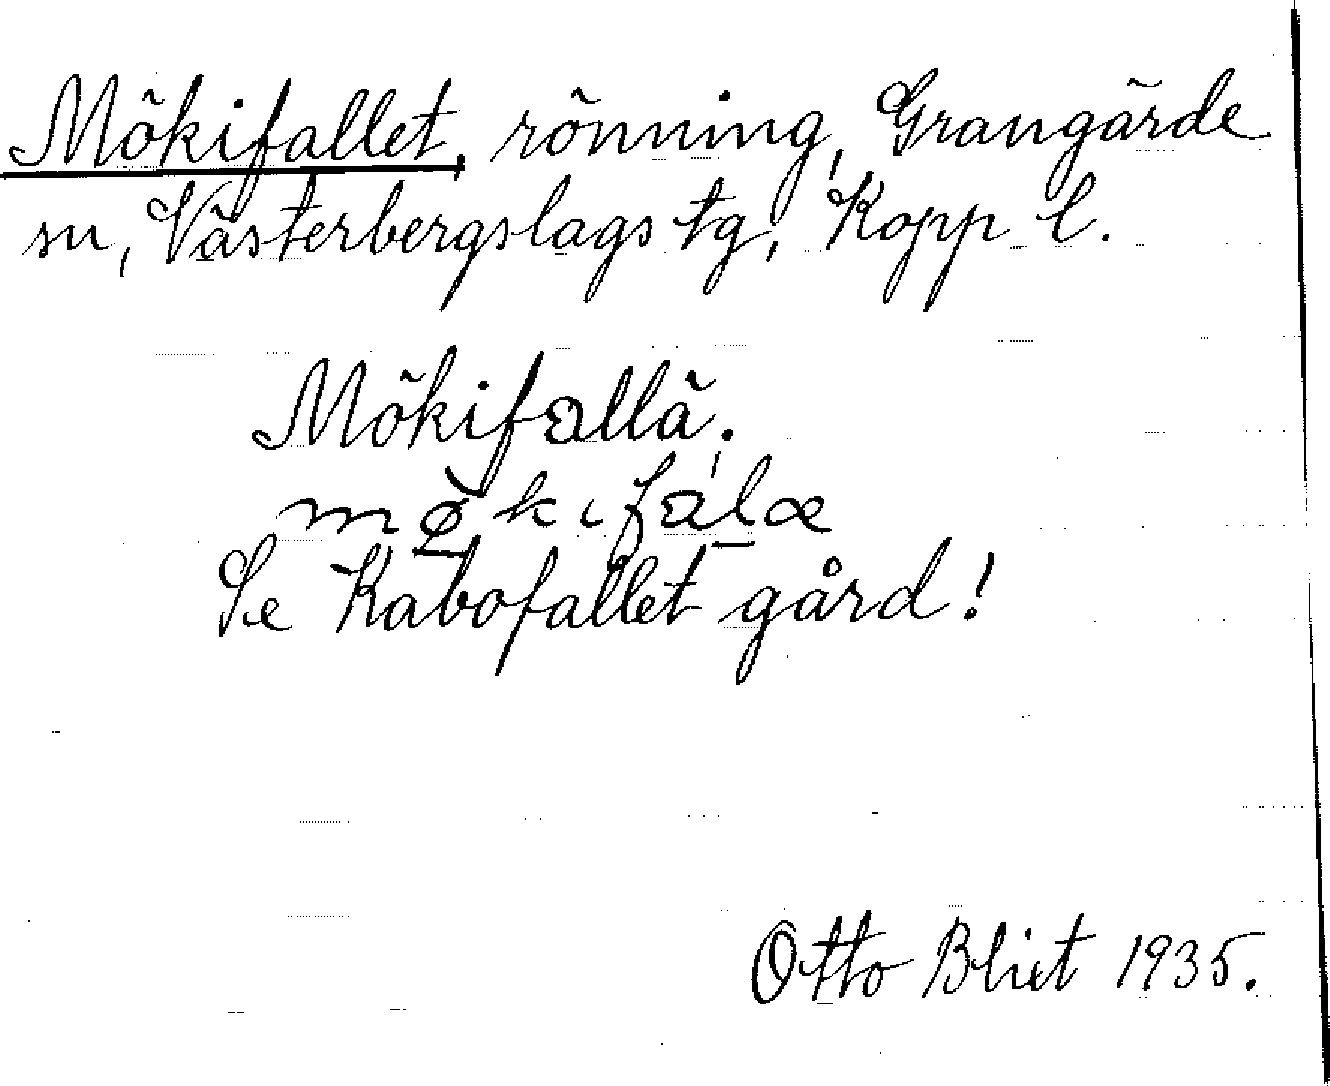 Mökifallet, rönning, Grangärde
sn, Västerbergslags tg, Kopp l.
Mökifallä.
mø̀kifálæ
Se Kabofallet gård!
Otto Blixt 1935.